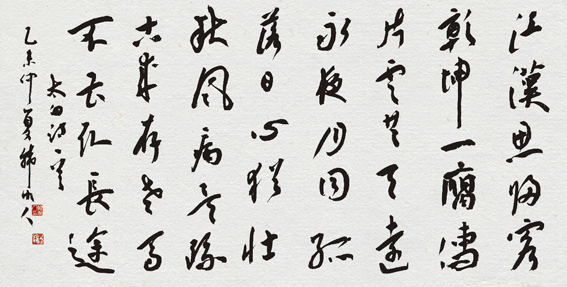 江漢思歸客
乾坤一腐儒
片雲共天遠
永夜月同孤
落日心猶壯
秋風病欲疏
古來存老馬
不必取長途
太白詩一首
乙未仲夏